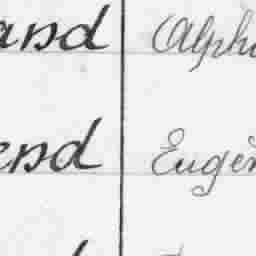 and Alpho
end Eugèn